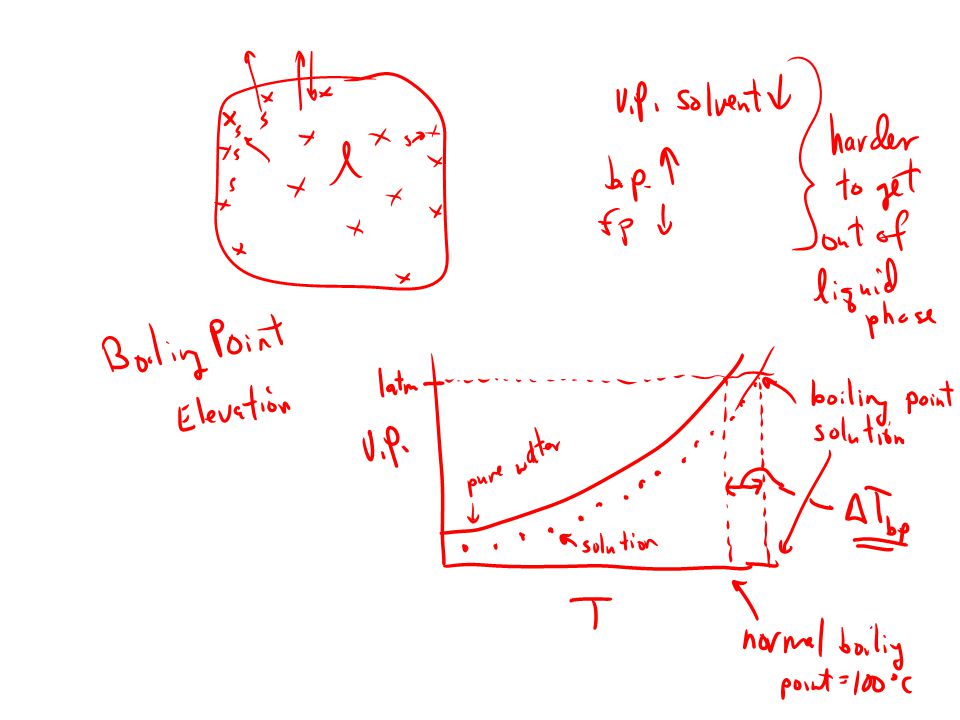 v.p. solvent ↓
b.p. ↑
fp ↓
harder
to get
out of
liquid
phase
x x x x x x x x x x x x x x x
s s s s s
l
Boiling Point
Elevation
1atm
V.P.
pure water
solution
T
boiling point
solution
ΔTbp
normal boilig
point = 100°C